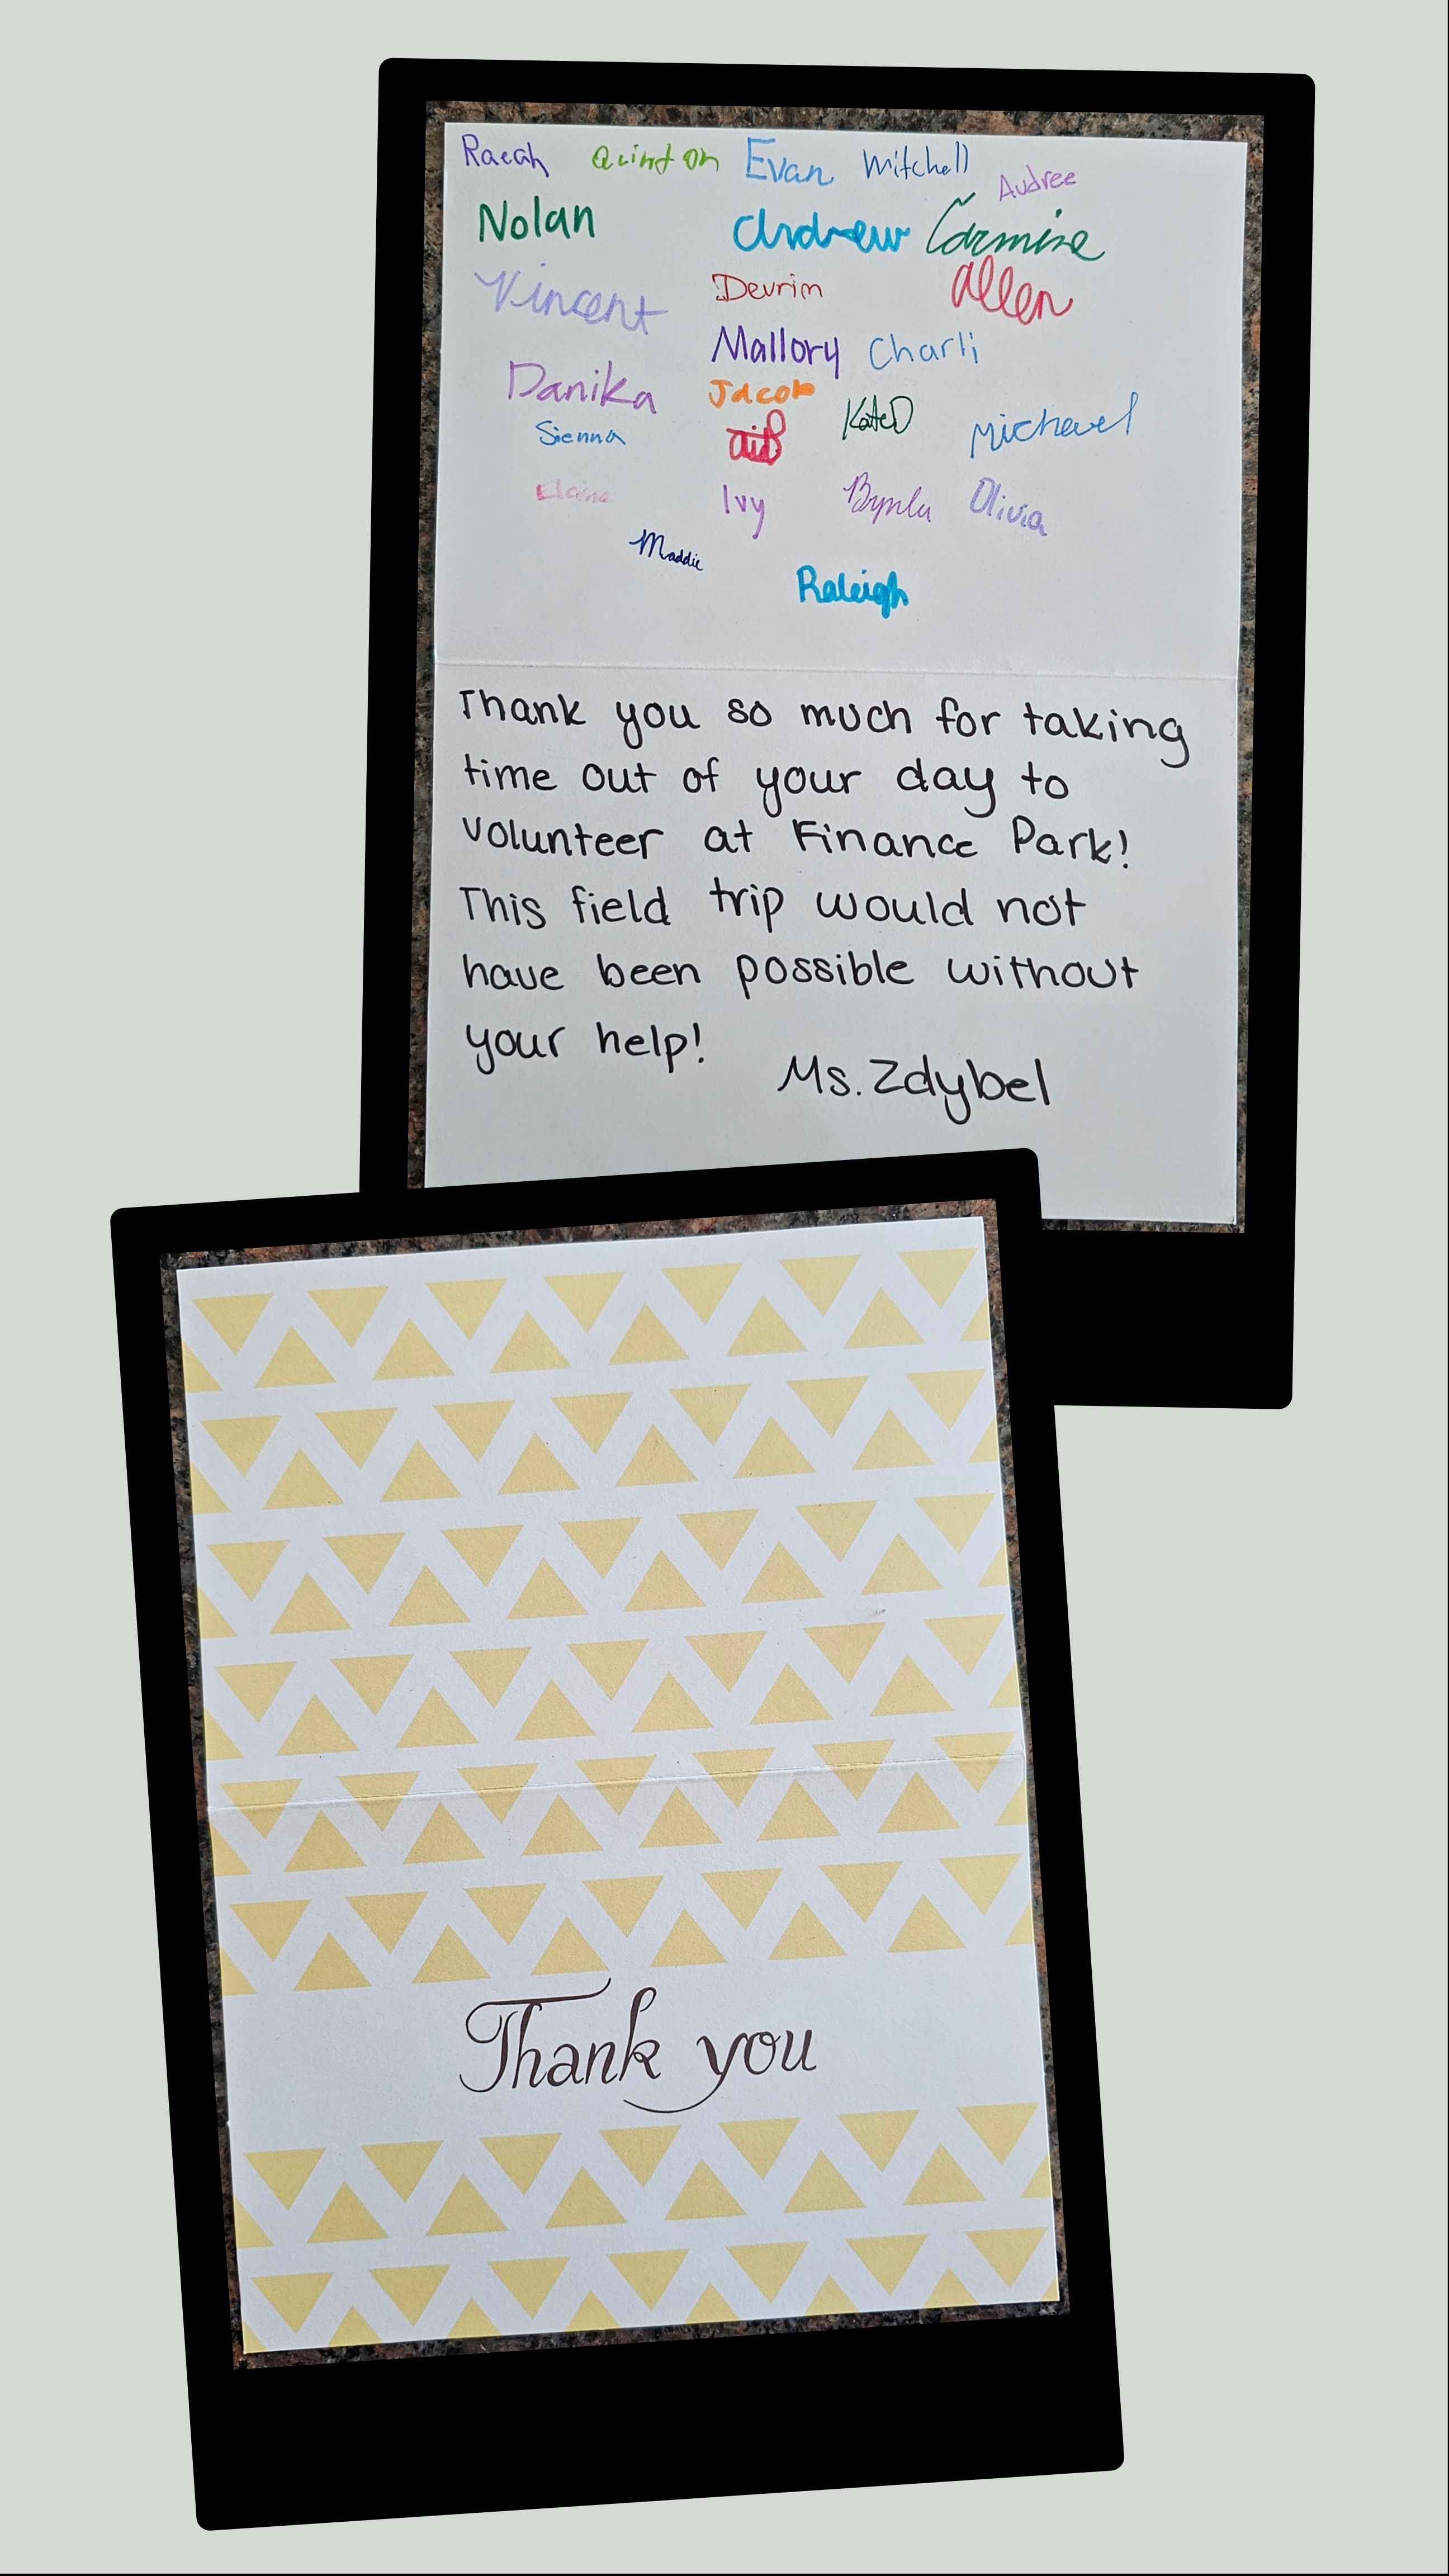 Raeah Quinton Evan Mitchell Audree
Nolan Andrew Carmine
Vincent Devrim Allen
Mallory Charli
Danika Jacob
Sienna KateD Michael
Elaina Ivy Brynlee Olivia
Maddie
Raleigh
Thank you so much for taking
time out of your day to
volunteer at Finance Park!
This field trip would not
have been possible without
your help!
Ms. Zdybel
Thank you